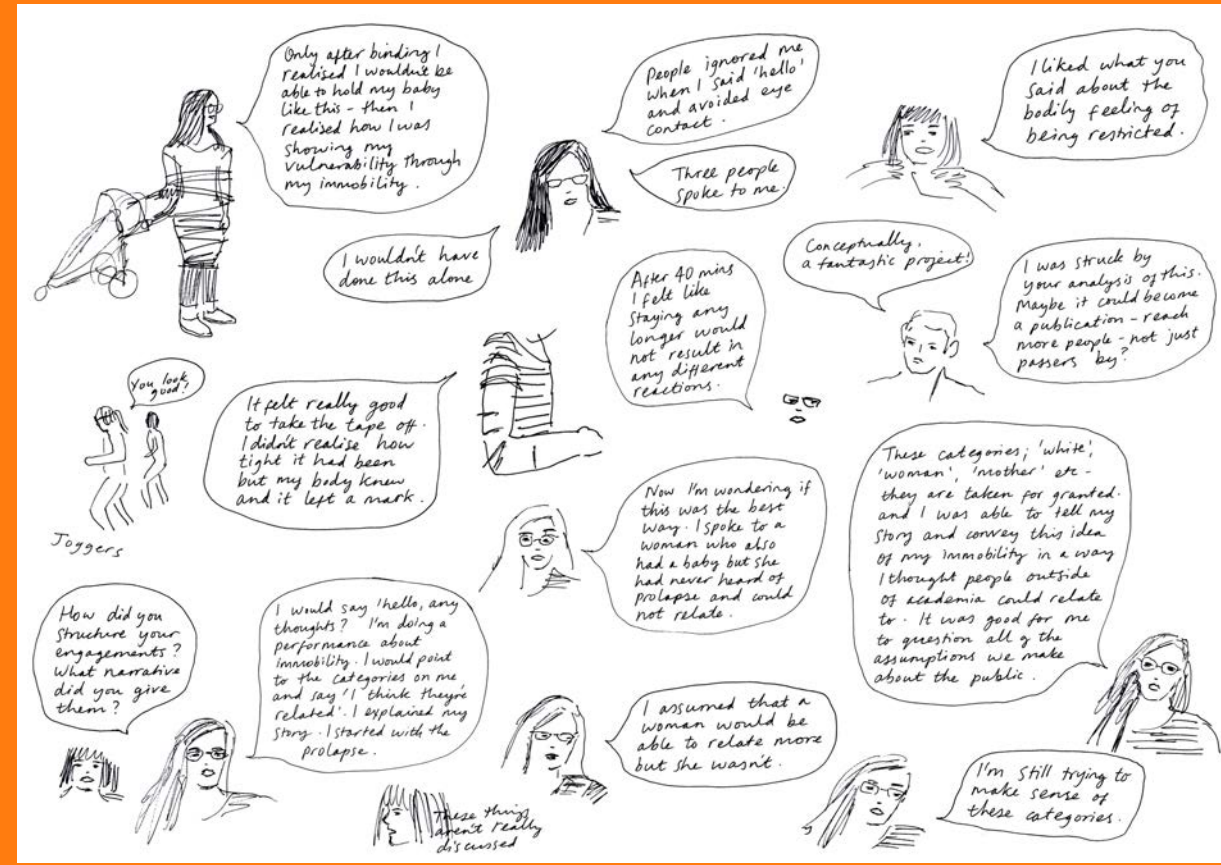 Only after binding I
realised I wouldn't be
able to hold my baby
like this - then I
realised how I was
showing my
vulnerability through
my immobility.
People ignored me
when I said 'hello'
and avoided eye
contact.
Three people
spoke to me.
I liked what you
said about the
bodily feeling of
being restricted.
I wouldn't have
done this alone
After 40 mins
I felt like
staying any
longer would
not result in
any different
reactions.
Conceptually,
a fantastic project!
I was struck by
your analysis of this.
Maybe it could become
a publication - reach
more people - not just
passers by?
You look
good!
Joggers
It felt really good
to take the tape off.
I didn't realise how
tight it had been
but my body knew
and it left a mark.
Now I'm wondering if
this was the best
way. I spoke to a
woman who also
had a baby but she
had never heard of
prolapse and could
not relate.
These categories; 'white',
'woman', 'mother' etc -
they are taken for granted.
and I was able to tell my
story and convey this idea
of my immobility in a way
I thought people outside
of academia could relate
to. It was good for me
to question all of the
assumptions we make
about the public.
How did you
structure your
engagements?
What narrative
did you give
them?
I would say 'hello, any
thoughts? I'm doing a
performance about
immobility. I would point
to the categories on me
and say 'I think they're
related'. I explained my
story. I started with the
prolapse.
These things
aren't really
discussed
I assumed that a
woman would be
able to relate more
but she wasn't.
I'm still trying to
make sense of
these categories.